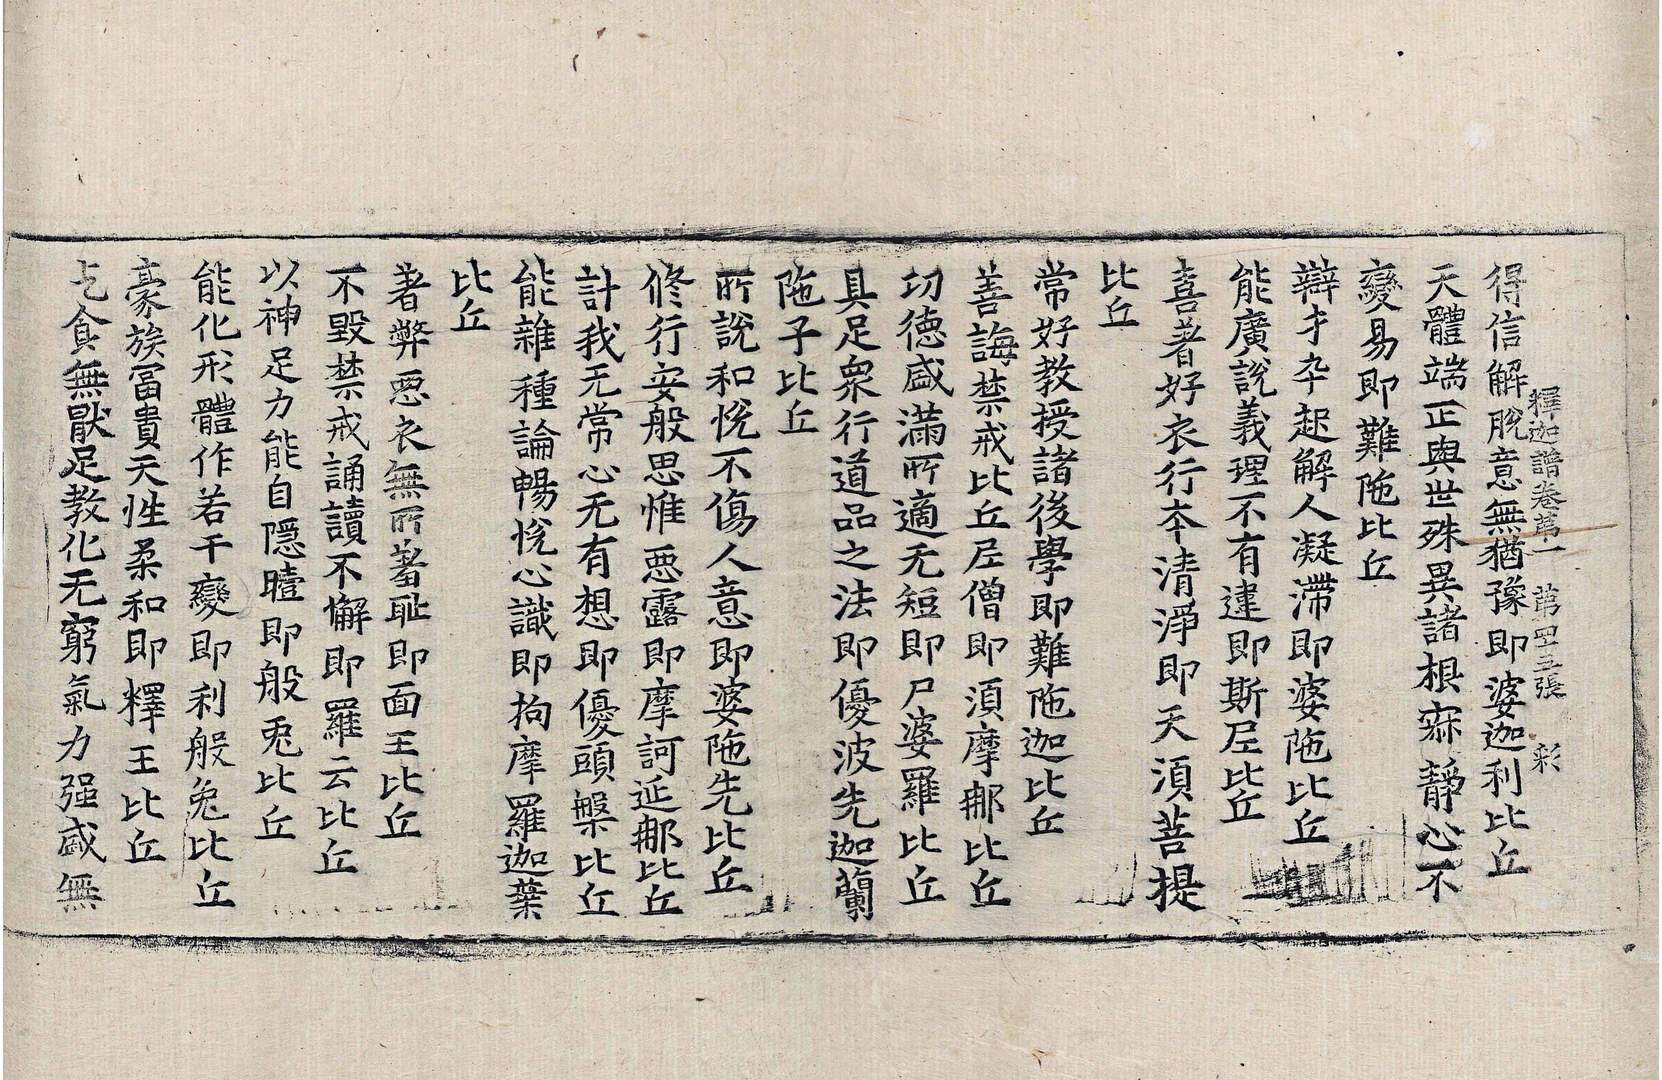 釋迦譜卷第一　第四五張　彩
得信解脫意無猶豫即婆迦利比丘
天體端正與世殊異諸根寂靜心不
變易即難陁比丘
辯才卒起解人凝滯即婆陁比丘
能廣說義理不有違即斯尼比丘
喜著好衣行夲清淨即天須菩提
比丘
常好教授諸後學即難陁迦比丘
善誨禁戒比丘尼僧即須摩那比丘
功德盛滿所適无短即尸婆羅比丘
具足衆行道品之法即優波先迦蘭
陁子比丘
所說和悅不傷人意即婆陁先比丘
修行安般思惟惡露即摩訶延那比丘
計我无常心无有想即優頭槃比丘
能雜種論暢悅心識即拘摩羅迦葉
比丘
著弊惡衣無所羞耻即面王比丘
不毀禁戒誦讀不懈即羅云比丘
以神足力能自隱曀即般兎比丘
能化形體作若干變即利般兔比丘
豪族冨貴天性柔和即釋王比丘
乞食無猒足教化无窮氣力强盛無